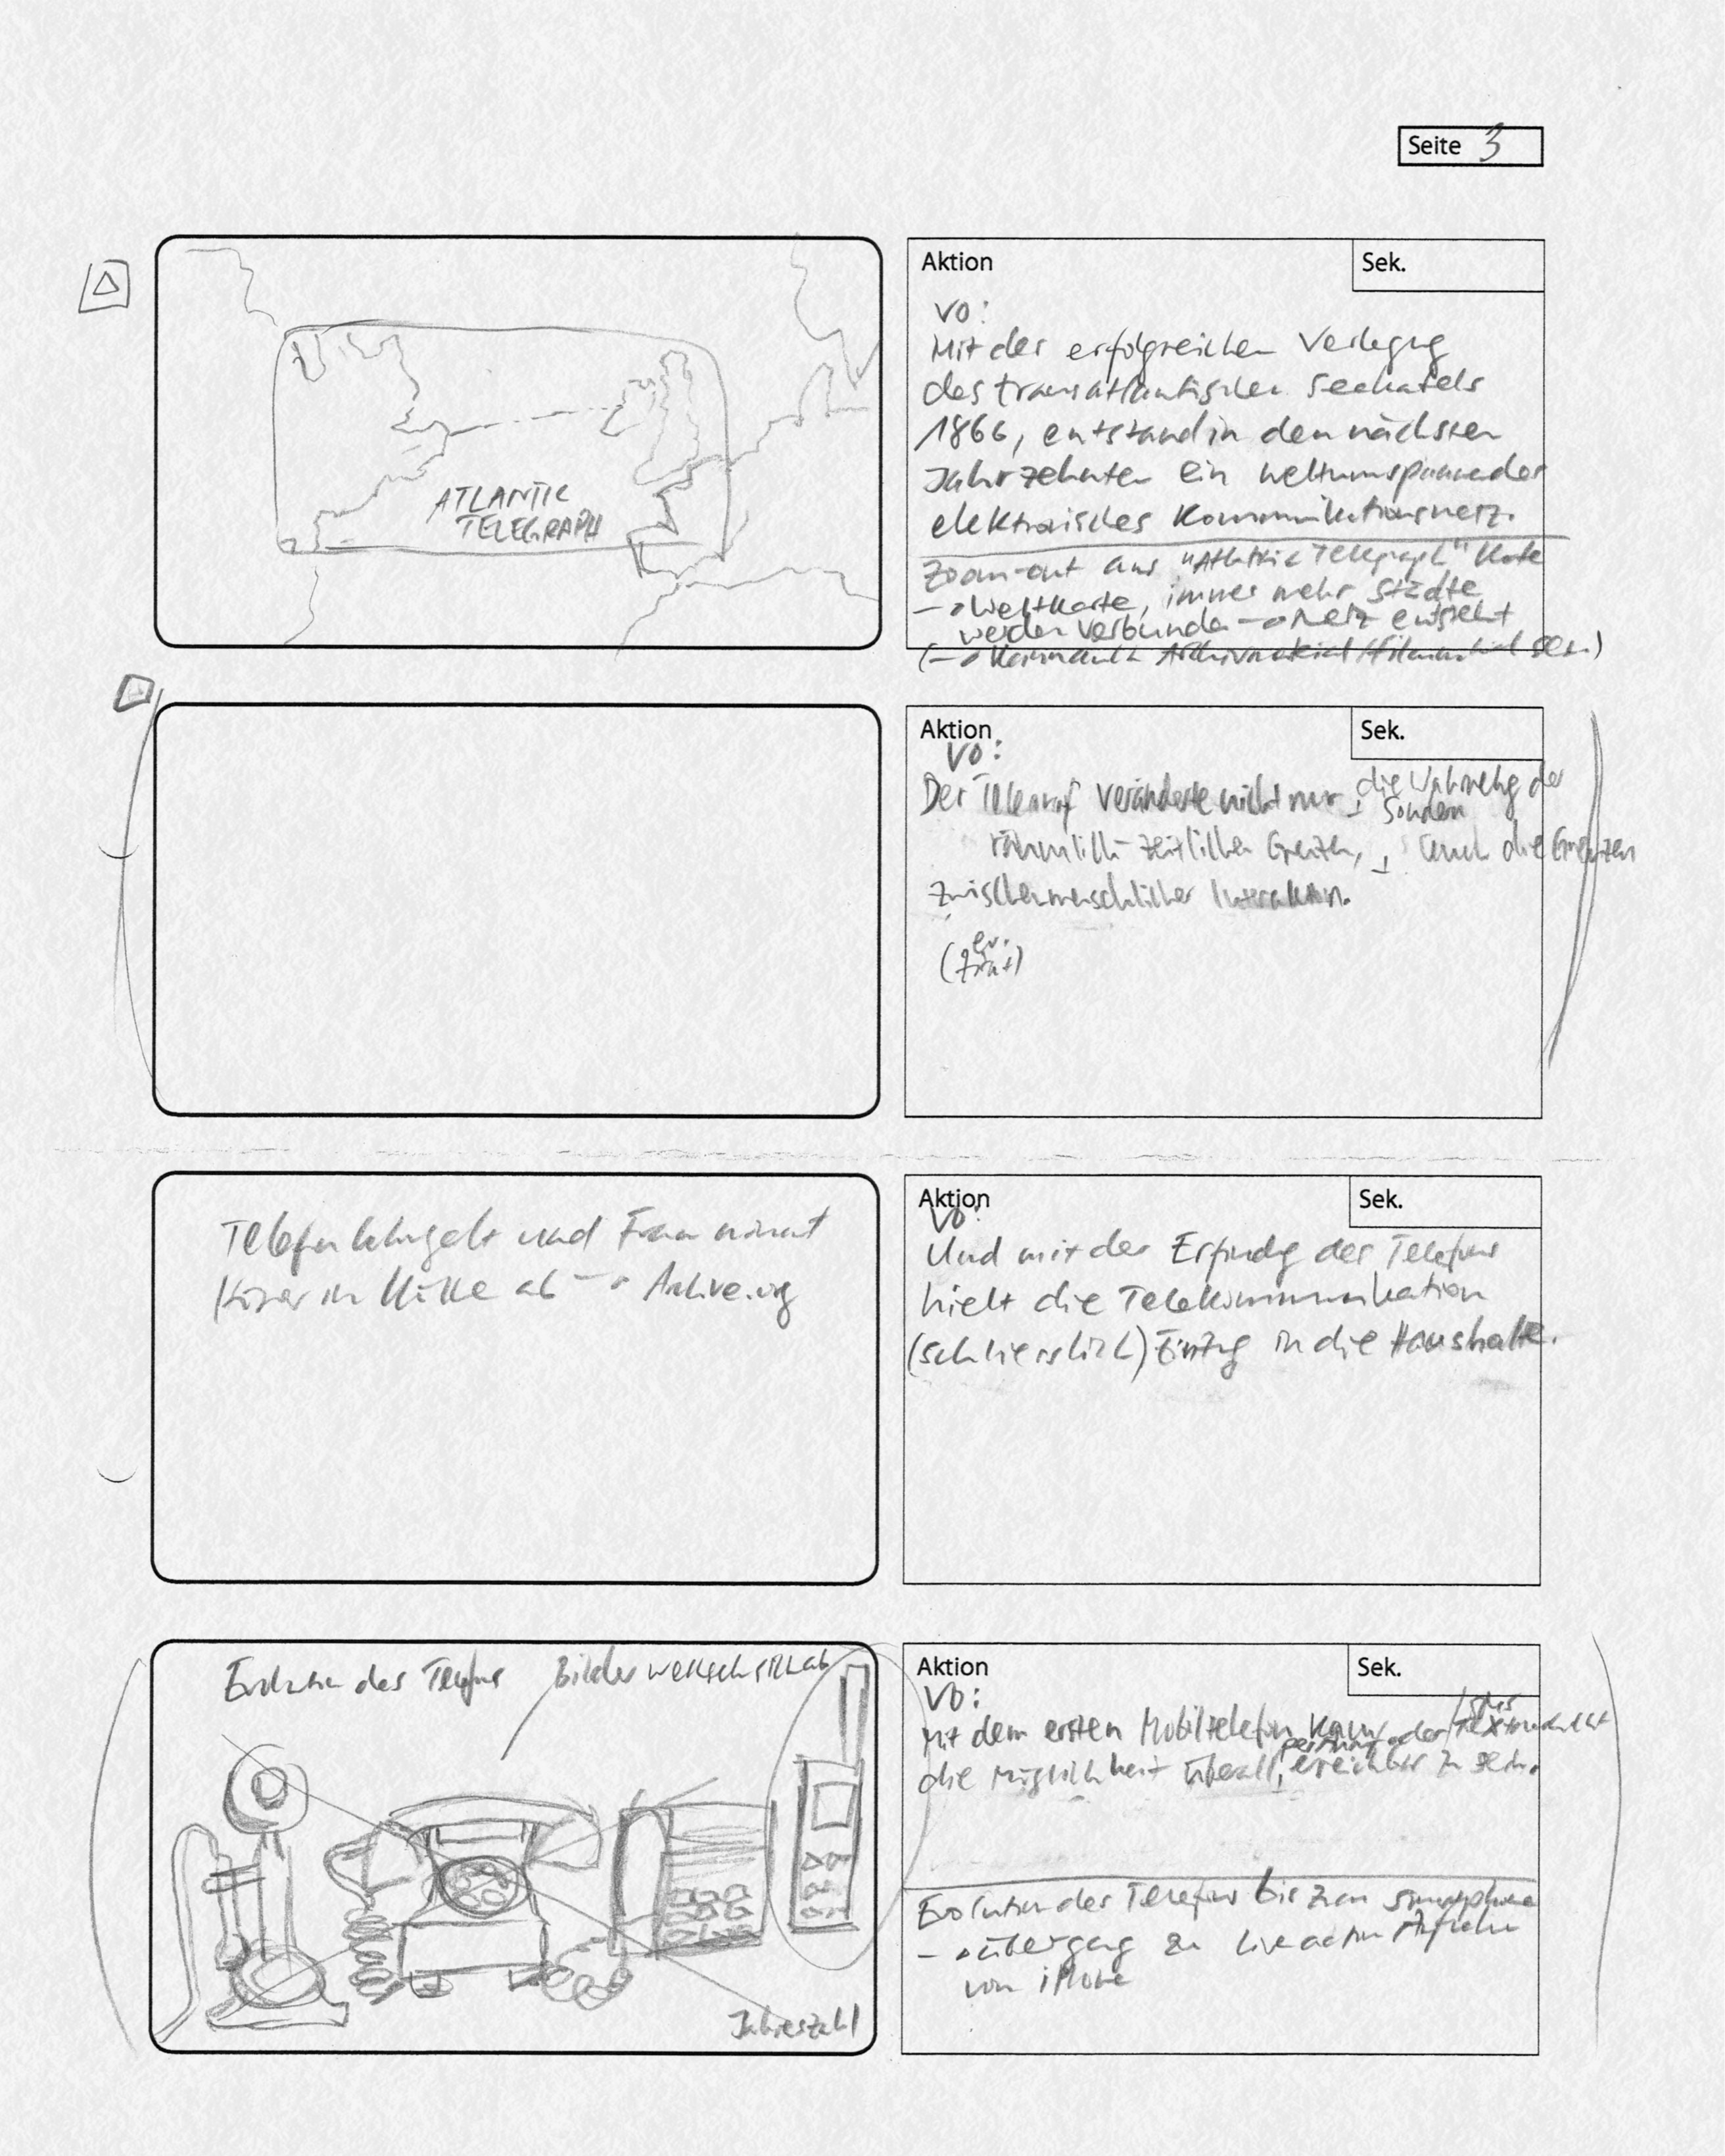 Seite 3
ATLANTIC
TELEGRAPH
Aktion
Sek.
VO:
Mit der erfolgreichen Verlegung
des transatlantischen Seekabels
1866, entstand in den nächsten
Jahrzehnten ein weltumspannendes
elektronisches Kommunikationsnetz.
Zoom-out aus "Atlantic Telegraph" Karte
→ Weltkarte, immer mehr Städte
werden verbunden → Netz entsteht
(→ Archivmaterial / sein)
Aktion
Sek.
VO:
Der Telegraf veränderte nicht nur die Wahrnehmung der
räumlich-zeitlichen Grenzen, sondern auch die Grenzen
zwischenmenschlicher Interaktion.
(ev.
Zitat)
Telefon klingelt und Frau nimmt
Hörer in Küche ab → Archive.org
Aktion
Sek.
VO:
Und mit der Erfindung des Telefons
hielt die Telekommunikation
(schliesslich) Einzug in die Haushalte.
Evolution des Telefons Bilder wechseln sich ab
Jahreszahl
Aktion
Sek.
VO:
Mit dem ersten Mobiltelefon kam
die Möglichkeit überall erreichbar zu sein.
Evolution des Telefons bis zum Smartphone
→ Übergang zu Liveaction Aufnahme
von iPhone